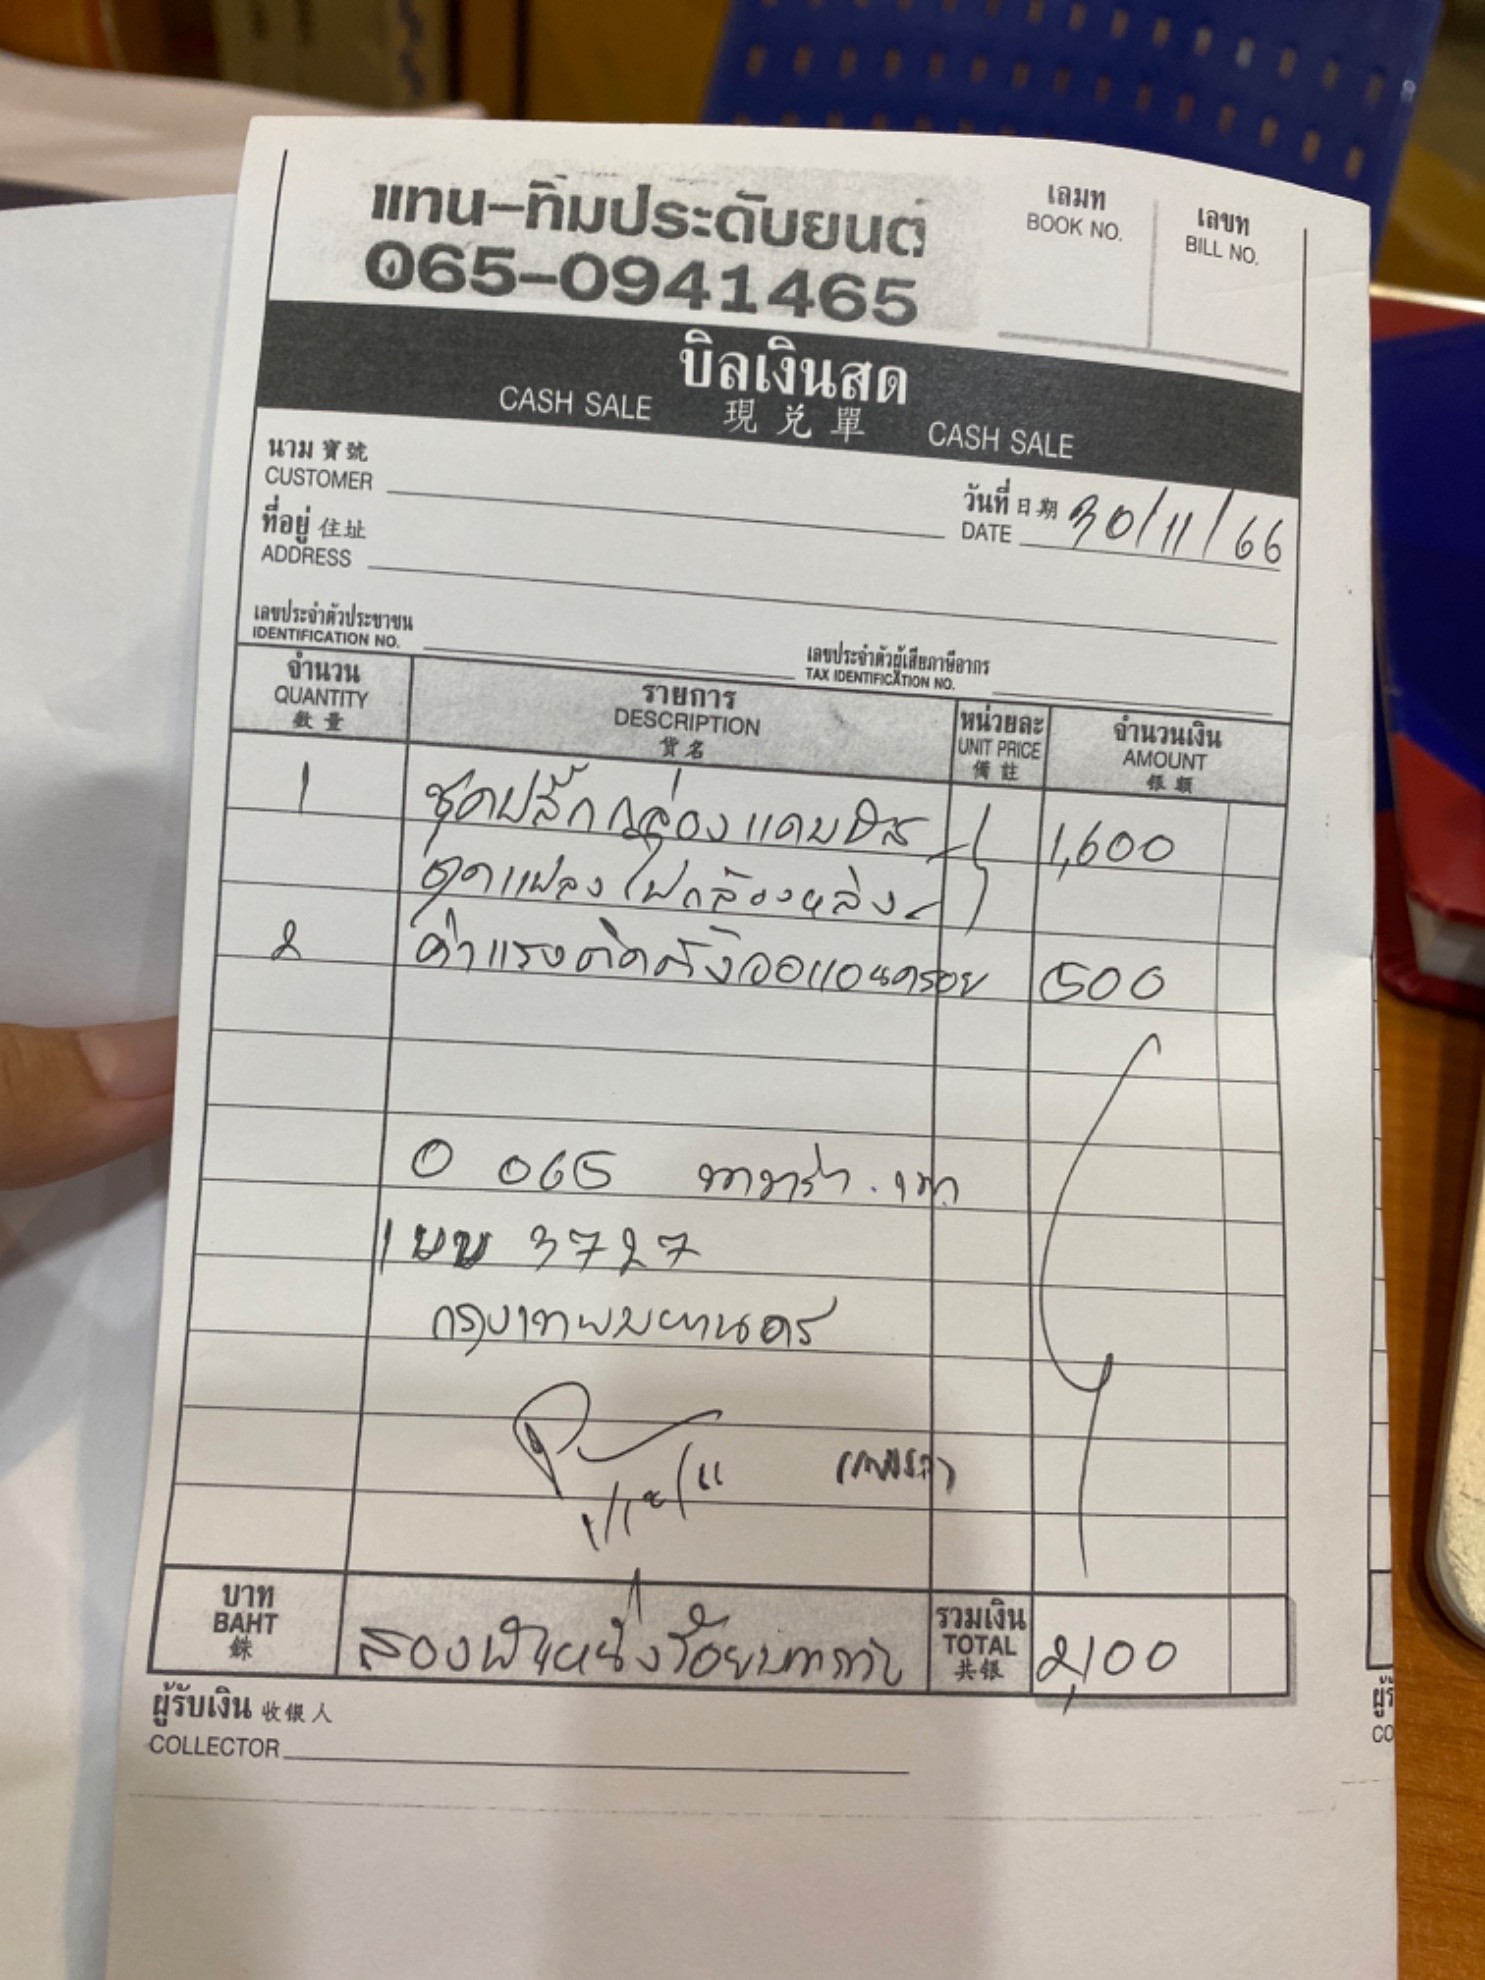 แทน-ทิมประดับยนต์
065-0941465
เลมท
BOOK NO.
เลขท
BILL NO.
บิลเงินสด
CASH SALE 現兌單 CASH SALE
นาม 寶號
CUSTOMER
วันที่ 日期 30/11/66
DATE
ที่อยู่ 住址
ADDRESS
เลขประจำตัวประชาชน
IDENTIFICATION NO.
เลขประจำตัวผู้เสียภาษีอากร
TAX IDENTIFICATION NO.
จำนวน
QUANTITY
數量
รายการ
DESCRIPTION
貨名
หน่วยละ
UNIT PRICE
備註
จำนวนเงิน
AMOUNT
銀額
1 ชุดปลั๊กกล่องแคนบัส 1,600
ชุดแปลงไฟกล้องหลัง
2 ค่าแรงติดตั้งจอแอนดรอย 500
0 065
1 ขบ 3727
กรุงเทพมหานคร
บาท
BAHT
銖
สองพันหนึ่งร้อยบาทถ้วน
รวมเงิน
TOTAL
共銀
2,100
ผู้รับเงิน 收银人
COLLECTOR
ผู้
CO